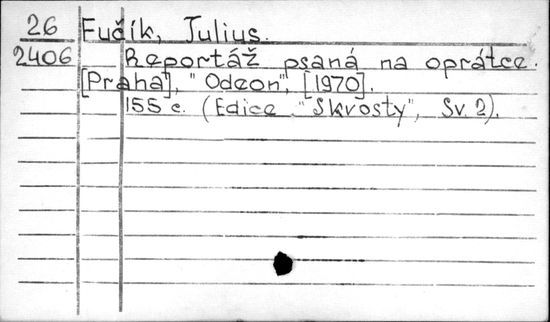 26 Fučík, Julius.
2406 Reportáž psaná na oprátce.
[Praha], "Odeon", [1970].
155 c. (Edice "Skvosty", Sv. 2).